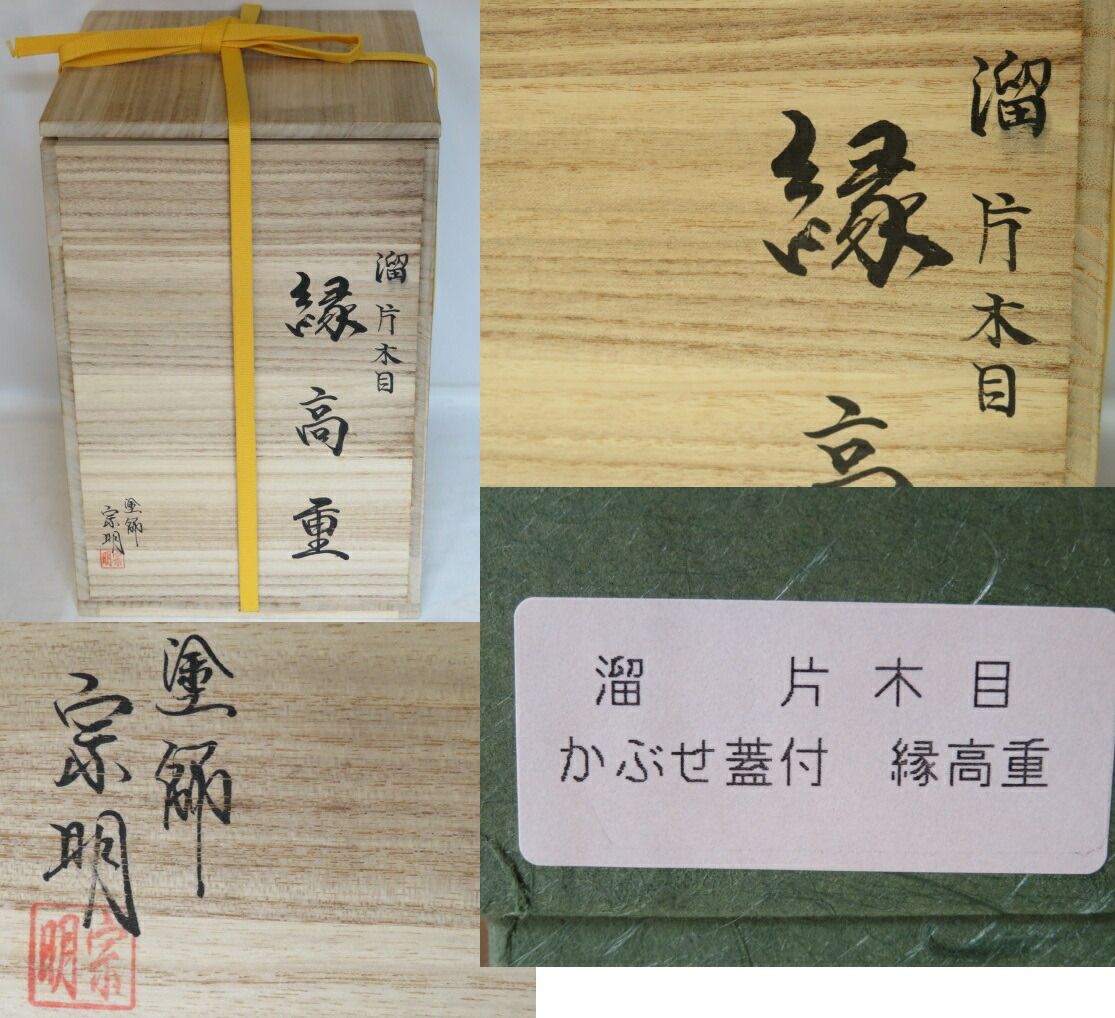 溜片木目
縁高重
塗師
宗明
宗明
溜片木目
縁高
塗師
宗明
宗明
溜 片木目
かぶせ蓋付 縁高重